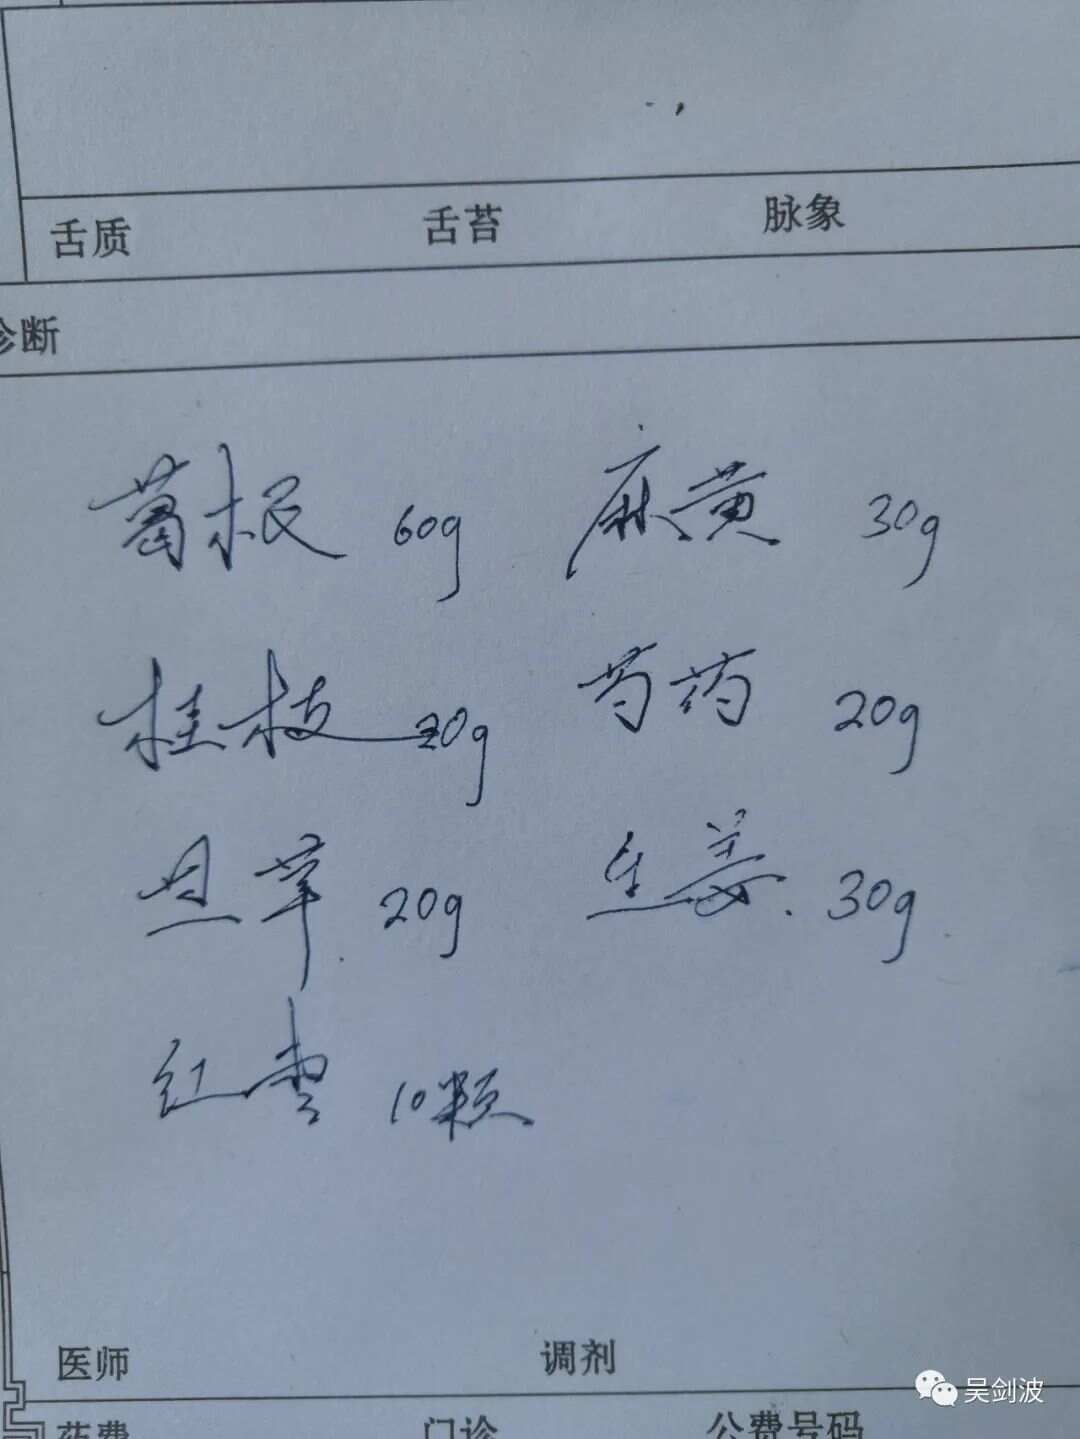 舌质 舌苔 脉象
诊断
葛根 60g 麻黄 30g
桂枝 20g 芍药 20g
旦草 20g 生姜 30g
红枣 10颗
医师 调剂
药费 门诊 公费号码
吴剑波